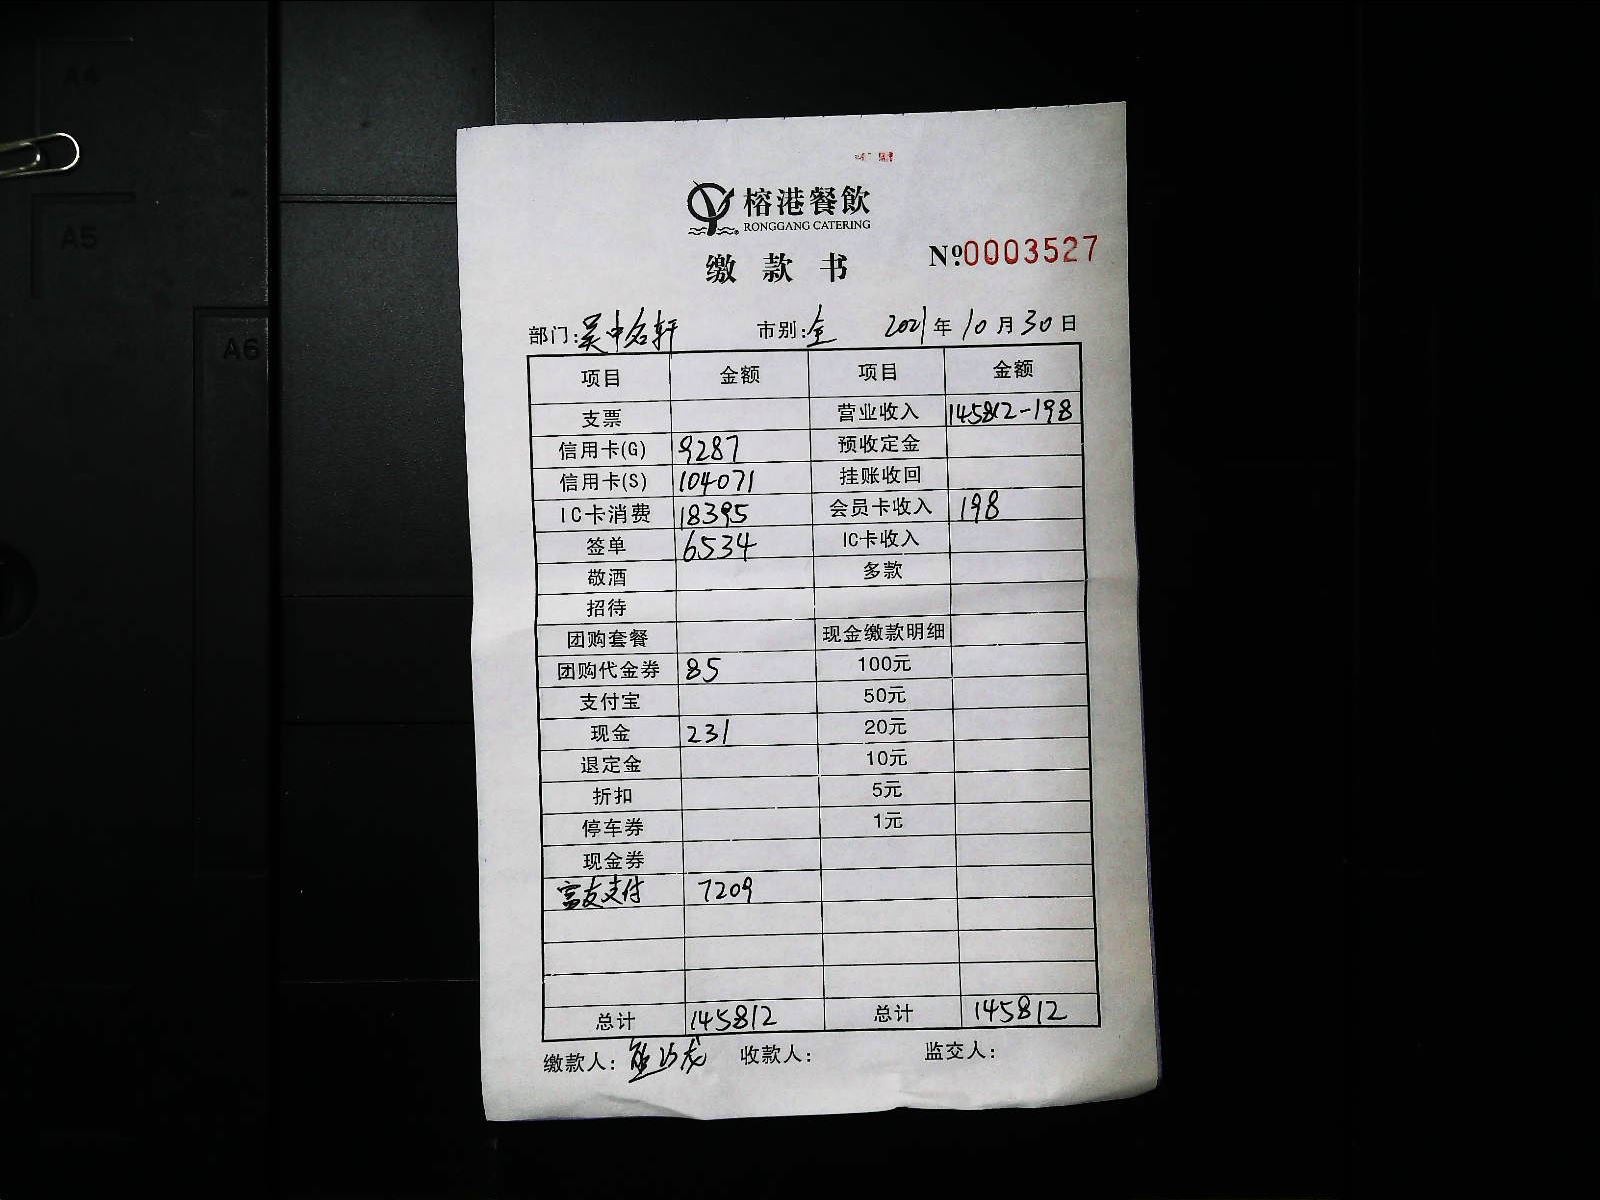 A4
A5
A6
榕港餐飲
RONGGANG CATERING
缴款书 №0003527
部门:吴中名轩 市别:全 2021年10月30日
项目 金额 项目 金额
支票 营业收入 145812-198
信用卡(G) 9287 预收定金
信用卡(S) 104071 挂账收回
IC卡消费 18395 会员卡收入 198
签单 6534 IC卡收入
敬酒 多款
招待
团购套餐 现金缴款明细
团购代金券 85 100元
支付宝 50元
现金 231 20元
退定金 10元
折扣 5元
停车券 1元
现金券
富友支付 7209
总计 145812 总计 145812
缴款人: 收款人: 监交人: